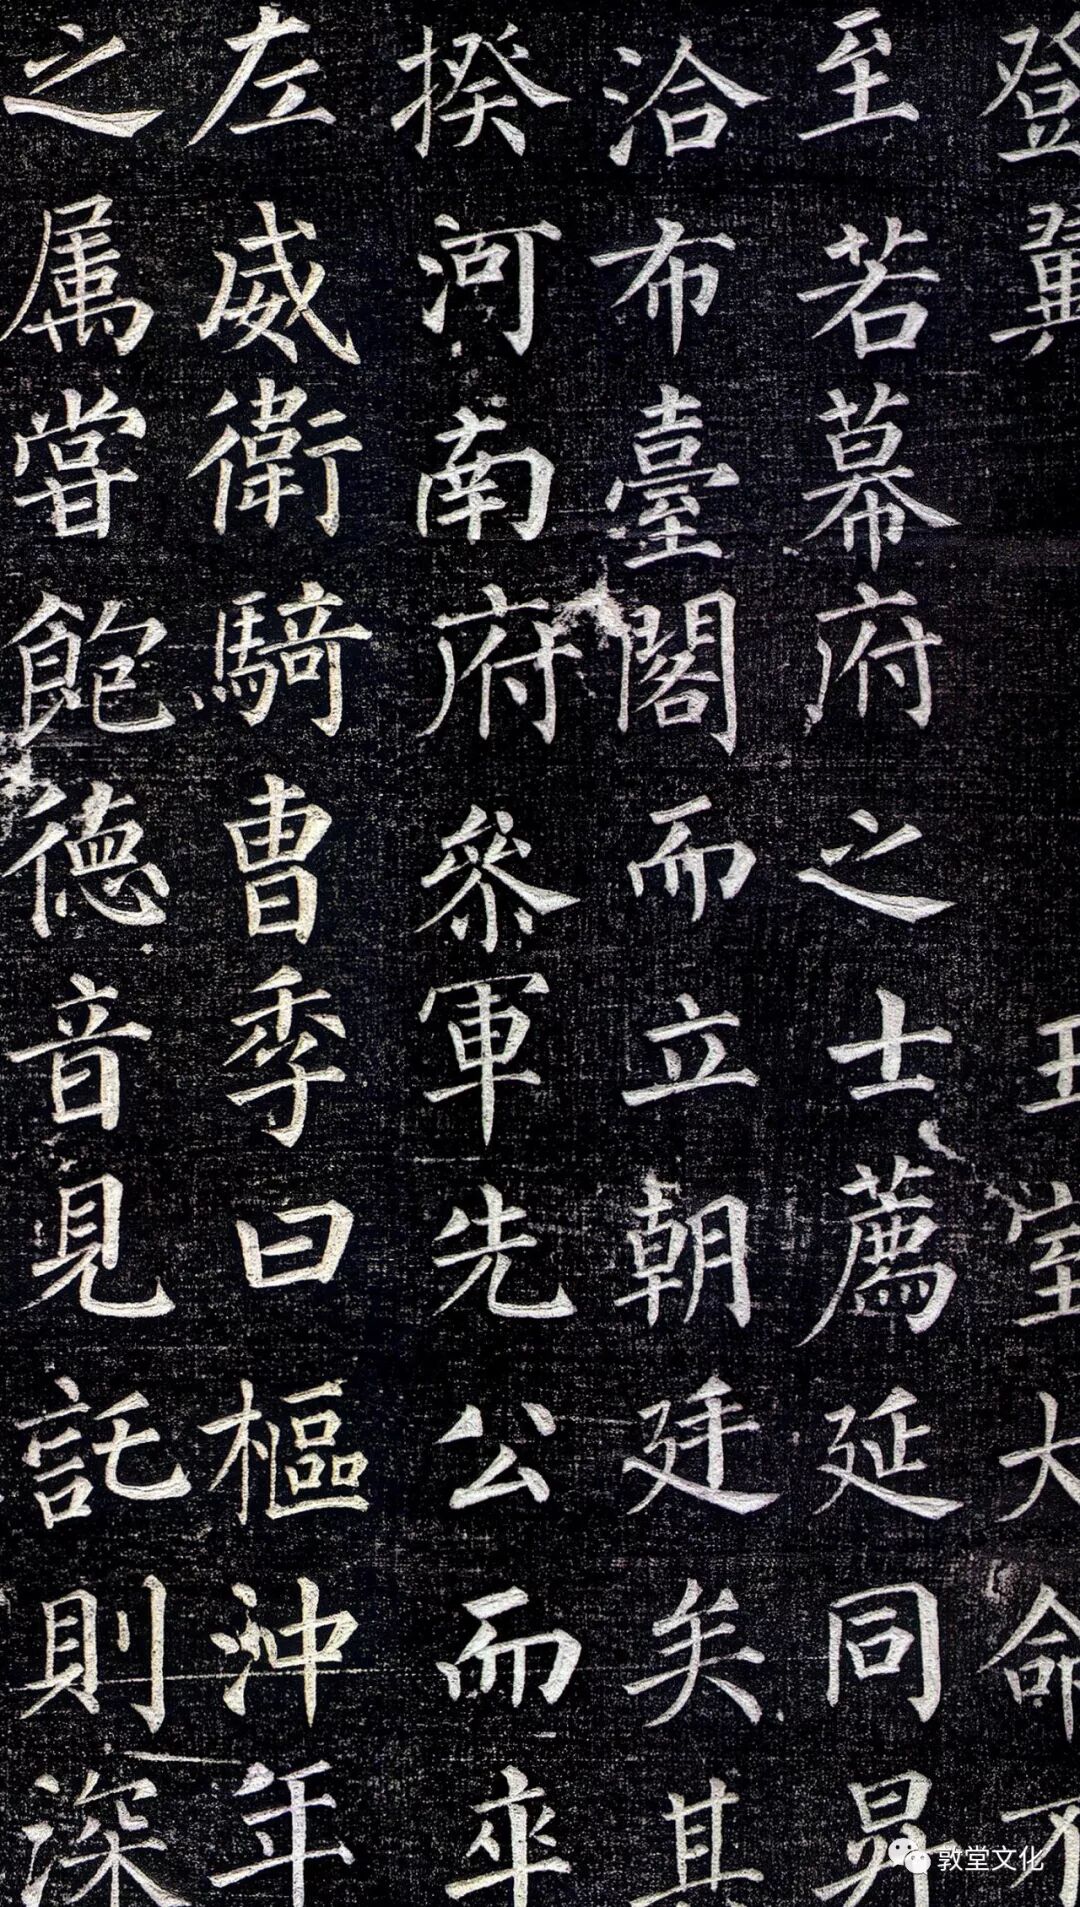 登翼　王室大命不
至若幕府之士薦延同昇
洽布臺閣而立朝廷矣其
揆河南府參軍先公而卒
左威衛騎曹季曰樞沖年
之属甞飽德音見託則深
敦堂文化